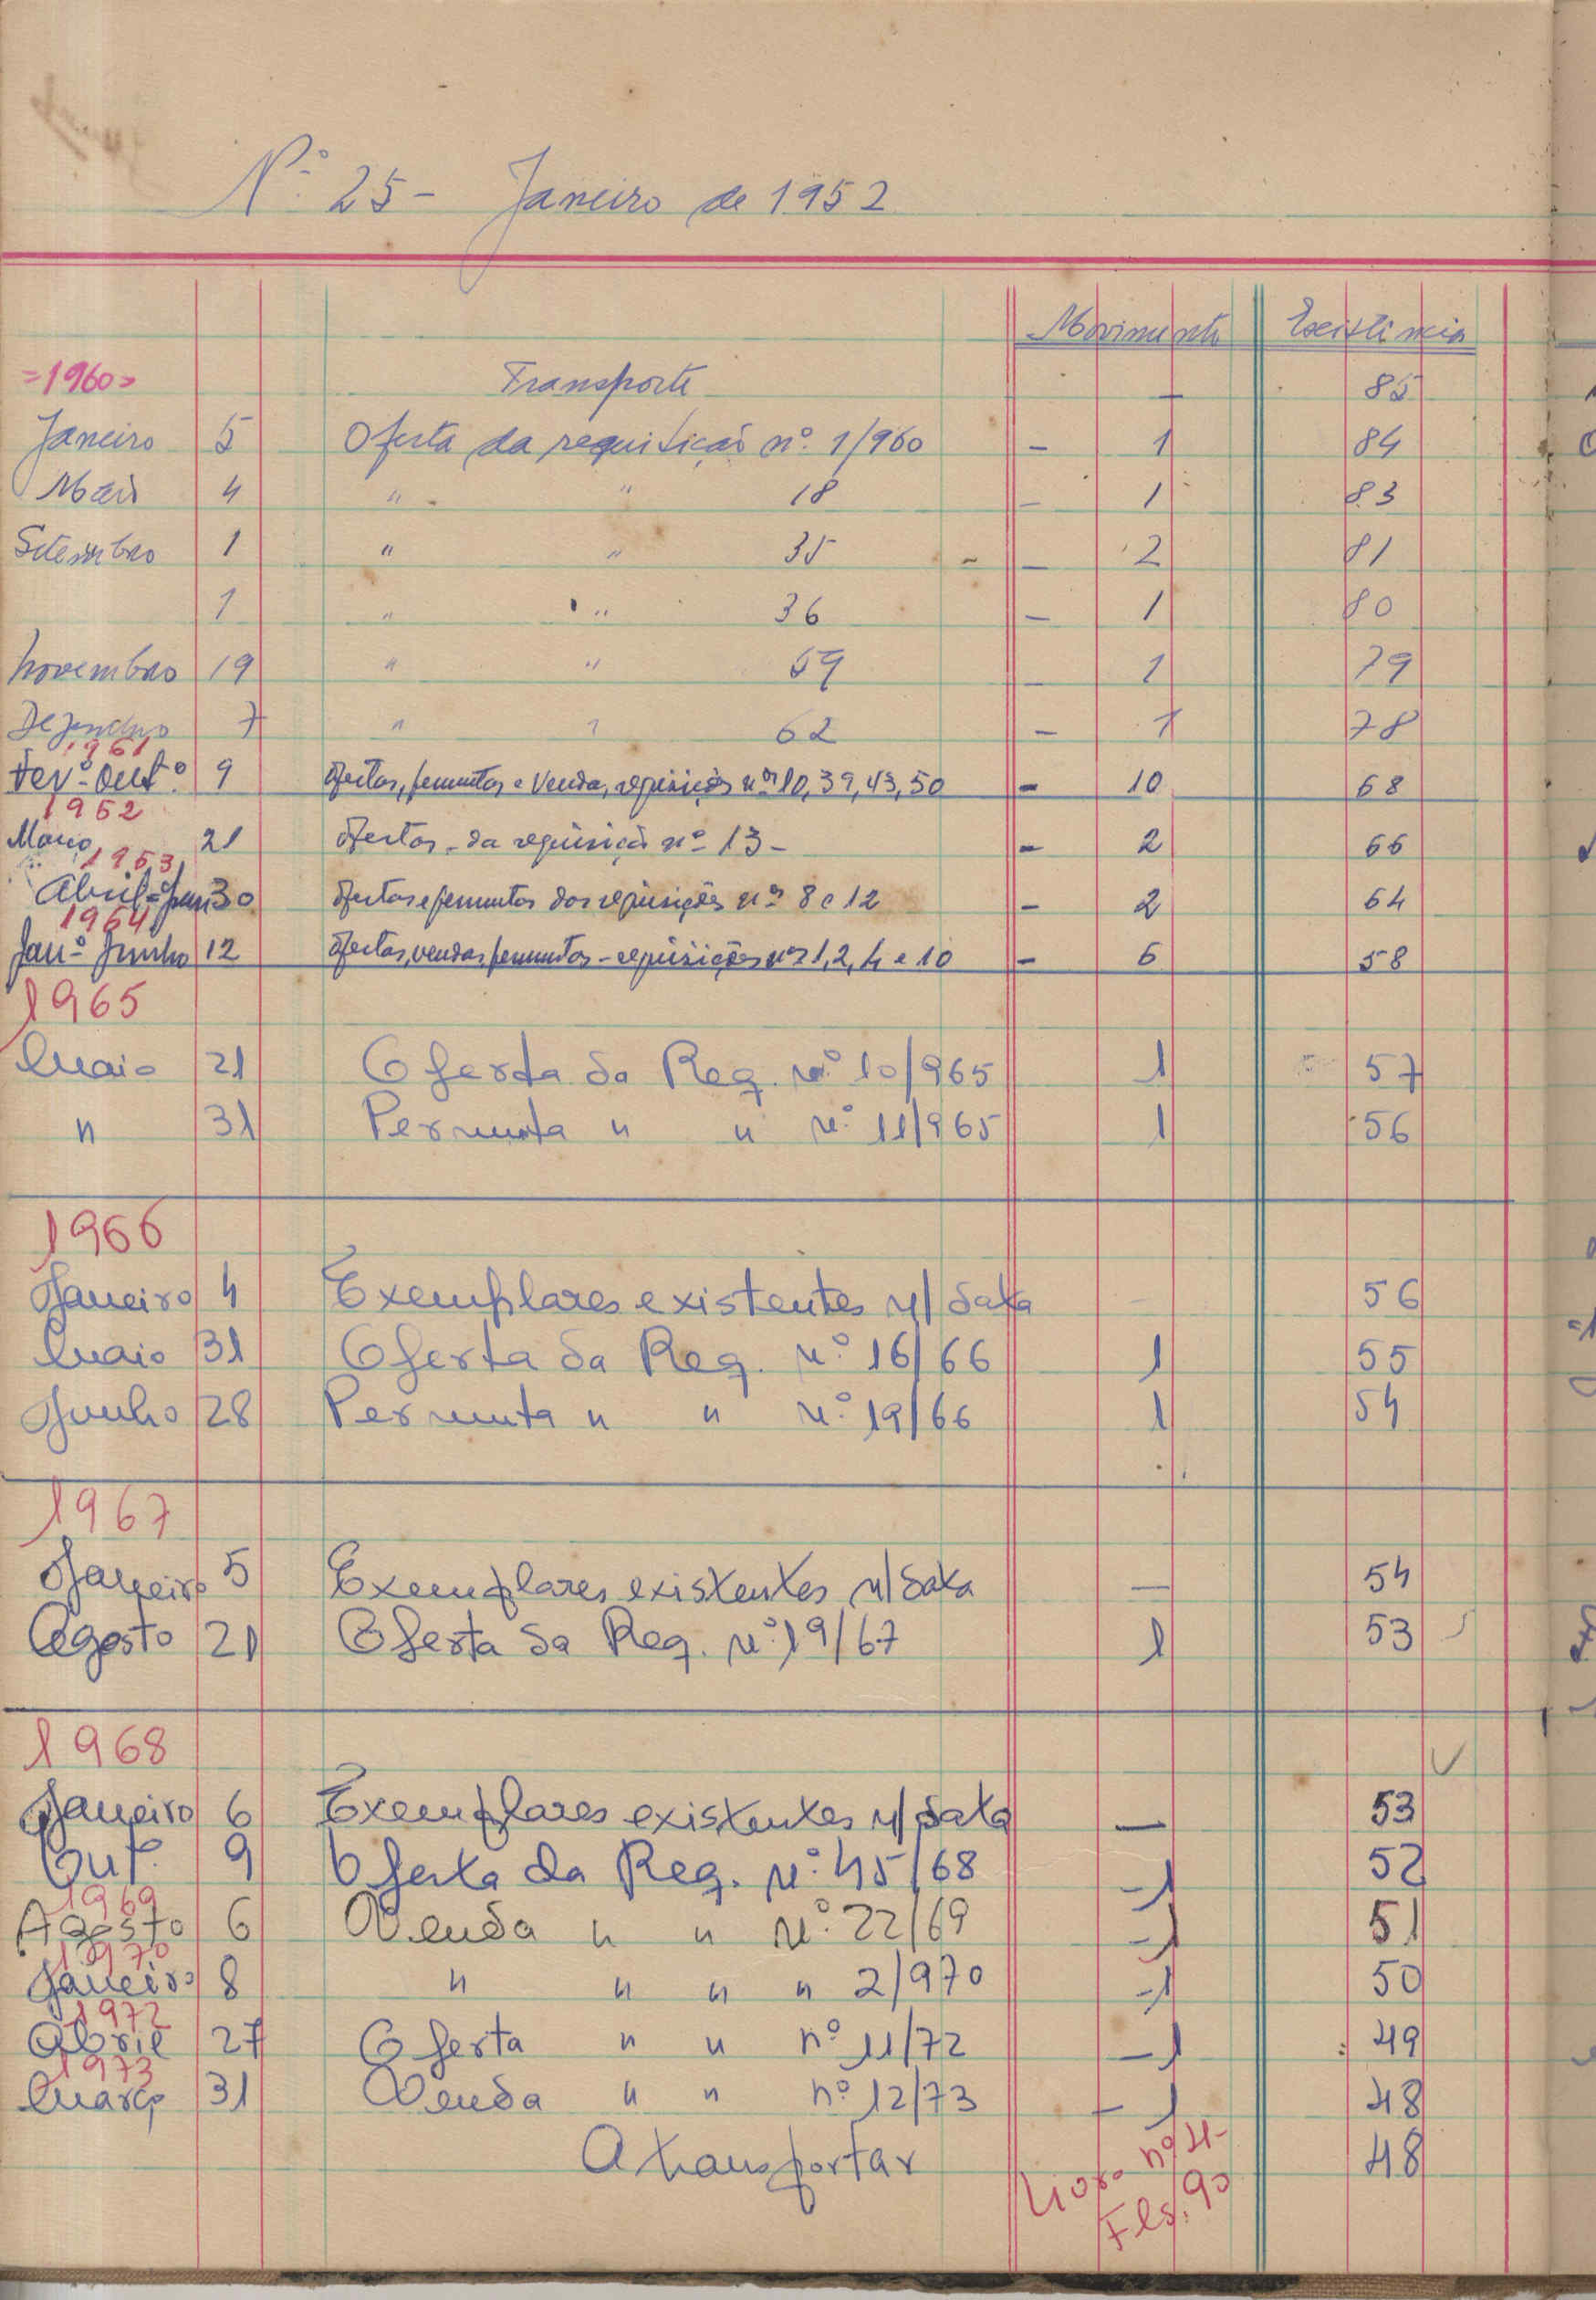 Nº 25 - Janeiro de 1952
Movimento Existência
=1960= Transporte — 85
Janeiro 5 Oferta da requisição nº 1/960 - 1 84
Maio 4 " " 18 - 1 83
Setembro 1 " " 35 - 2 81
1 " " 36 - 1 80
Novembro 19 " " 59 - 1 79
Dezembro 7 " " 62 - 1 78
1961
Fevº-Outº 9 Ofertas, permutas e Venda, requisições nºs 10, 39, 43, 50 - 10 68
1962
Março 21 Ofertas - da requisição nº 13 - - 2 66
1963
Abril= 30 Ofertas e permutas das requisições nºs 8 e 12 - 2 64
1964
Janº Junho 12 Ofertas, vendas, permutas - requisições nºs 1, 2, 4 e 10 - 6 58
1965
Maio 21 Oferta da Req. nº 10/965 1 57
" 31 Permuta " " nº 11/965 1 56
1966
Janeiro 4 Exemplares existentes n/ data — 56
Maio 31 Oferta da Req. nº 16/66 1 55
Junho 28 Permuta " " nº 19/66 1 54
1967
Janeiro 5 Exemplares existentes n/ data — 54
Agosto 21 Oferta da Req. nº 19/67 1 53
1968
Janeiro 6 Exemplares existentes n/ data — 53
Outº 9 Oferta da Req. nº 45/68 -1 52
1969
Agosto 6 Venda " " Nº 22/69 -1 51
1970
Janeiro 8 " " " " 2/970 -1 50
1972
Abril 27 Oferta " " nº 11/72 -1 49
1973
Março 31 Venda " " nº 12/73 -1 48
A transportar 48
Livro nº 4-
Fls. 90